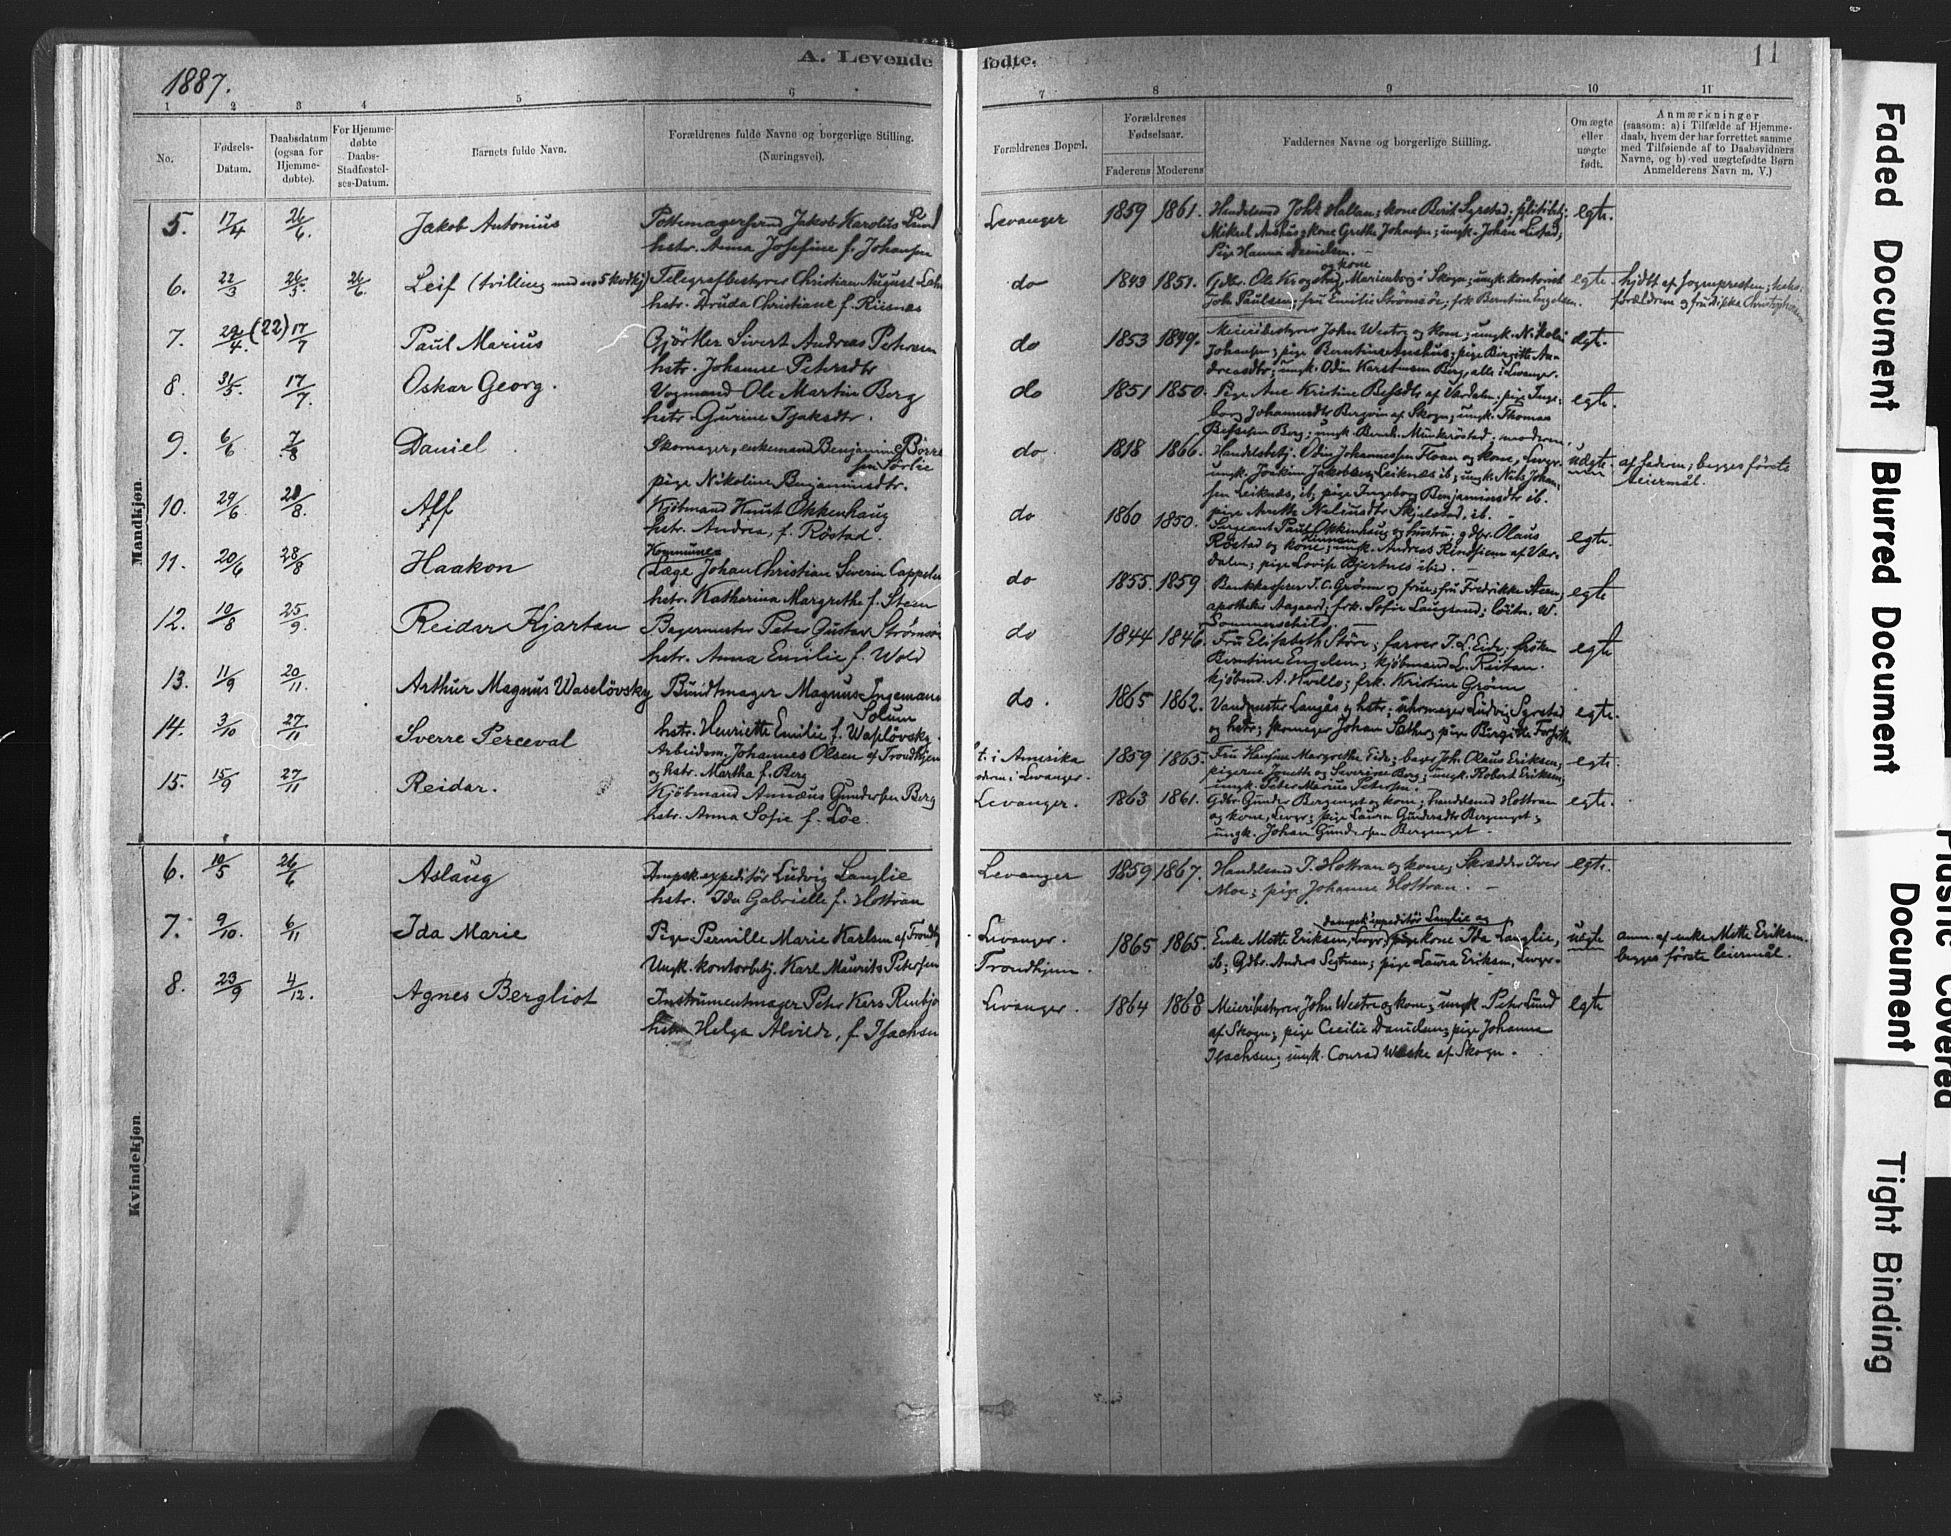 A. Levende fødte.
11
1887.
1 2 3 4 5 6 7 8 9 10 11
No.
Fødsels-
Datum.
Daabsdatum
(ogsaa for
Hjemme-
døbte).
For Hjemme-
døbte
Daabs-
Stadfæstel-
ses-Datum.
Barnets fulde Navn.
Forældrenes fulde Navne og borgerlige Stilling.
(Næringsvei).
Forældrenes Bopæl.
Forældrenes
Fødselsaar.
Faderens Moderens
Faddernes Navne og borgerlige Stilling.
Om ægte
eller
uægte
født.
Anmærkninger
(saasom: a) i Tilfælde af Hjemme-
daab, hvem der har forrettet samme,
med Tilføiende af to Daabsvidners
Navne, og b) ved uægtefødte Børn
Anmelderens Navn m. V.)
Mandkjøn.
5. 17/4 26/6. Jakob Antonius
Pottemagersvend Jakob Karolus Lund
hstr. Anna Josefine f. Johansen
Levanger 1859 1861.
Mikael Aushus; kone Grethe Johansen; ungk. Johan
Pige Hanna Danielsen.
egte.
6. 22/3 26/3. 26/6 Leif (tvilling med no 5 kvdkj)
Telegrafbestyrer Christian August
hstr. Druda Christiane f. Riisnæs
do 1843 1851.
Gdbr. Ole Krogstad og kone, Marienborg i Skogn; ungk. kontorist
Joh Paulsen; fru Emilie Strømsøe; frk Berntine Engelsen.
egte.
hjdbt af sognepresten;
forældrene
7. 22/4. (22) 17/7 Paul Marius
Gjörtler Sivert Andreas Petersen
hstr. Johanne Petersdtr
do 1853 1849.
Meieribestyrer John Westre og kone; ungk. Nikolai
Johansen; pige Berntine Aushus; pige Birgitte An-
dreasdtr; ungk. Odin Karstensen Berg, alle i Levanger.
egte.
8. 31/5. 17/7. Oskar Georg.
Vognmand Ole Martin Berg
hstr. Gurine Isaksdtr.
do 1851 1850.
Pige Ane Kristine af Værdalen. pige Inge-
borg Johannesdtr af Skogn; ungk. Thomas
Berg; ungk. Bernh. Munkrøstad; moderen.
egte.
9. 6/6 7/8 Daniel
Skomager, enkemand Benjamin Börre-
sen Sørlie
pige Nikoline Benjaminsdtr.
do. 1818 1866.
Handelsbetj. Odin Johannessen Floan og kone, Levgr.
ungk. Joakim Jakobsen Leiknæs ib; ungk. Nils Johan-
sen Leiknæs, ib; pige Ingeborg Benjaminsdtr ib.
pige Anette Skjelstad, ib.
uægte
af faderen; begges første
leiermål.
10. 29/6. 28/8. Alf
Kjöbmand Knut Okkenhaug
hstr. Andrea, f. Röstad.
do 1860 1850.
Sergeant Paul Okkenhaug og hustru; gdbr. Olaus
Röstad og kone; ungk. Andreas af Vær-
dalen; pige Lovise Bjertnes ibid.
egte.
11. 20/6 28/8 Haakon
Kommune-
Læge Johan Christian Severin Cappelen
hstr. Katharina Margrethe f. Steen
do 1855 1859
Bankkasserer J. C. Grønn og frue; fru Fredrikke Steen;
apotheker Aagaard; frk. Sofie Laugsand; löitn. W.
Sommerschild.
egte
12. 10/8 25/9. Reidar Kjartan
Bagermester Peter Gustav Strømsøe
hstr. Anna Emilie f. Wold
do 1844 1846.
Fru Elisabeth Støre; farver J. L. Eide; frøken
Berntine Engelsen; kjöbmand L. Reitan.
kjöbmd. A. Hveello; frk. Kristine Grønn
egte
13. 11/9 20/11. Arthur Magnus Waselövsky
Bundtmager Magnus Ingemann
Solum
hstr. Henriette Emilie f. Waslövsky.
do. 1865 1862.
Vandmester Langås og hstr; uhrmager Ludvig Syrstad
og hstr; skomager Johan Sæther; pige Birgitte
egte.
14. 3/10 27/11 Sverre Perceval
Arbeidsm. Johannes Olsen af Trondhjem
og hstr. Martha f. Berg
i Amerika
i Levanger.
1859 1865.
Fru Hansine Margrethe Eide; Joh. Olaus Eriksen;
pigerne Jonetta og Severine Berg; ungk. Robert Eriksen;
ungk. Peter Marius Petersen.
egte.
15. 15/9 27/11 Reidar.
Kjöbmand Annæus Gundersen Berg
hstr. Anna Sofie f. Löe.
Levanger. 1863 1861.
Gdbr Gunder Bergenget og kone; handelsmd Hottran
og kone, Levgr; pige Laura Gundersdtr Bergenget;
ungk. Johan Gundersen Bergenget.
egte.
Kvindekjøn
6. 10/5 26/6 Aslaug
Dampsk.expeditör Ludvig Langlie
hstr. Ida Gabrielle f. Hottran
Levanger 1859 1867.
Handelsmd J. Hottran og kone; Skrædder Iver
Moe; pige Johanne Hottran.
egte.
7. 9/10. 6/11 Ida Marie
Pige Pernille Marie Karlsen af Trondhj
Ungk. kontorbetj. Karl Maurits Petersen
Levanger.
Trondhjem.
1865 1865.
dampsk.expeditör Langlie og
Enke Mette Eriksen, Levgr; kone Ida Langlie,
ib; Gdbr. Anders Segtnan; pige Laura Eriksen, Levgr.
uægte
anm. af enke Mette Eriksen.
begges første leiermål.
8. 23/9 4/12. Agnes Bergliot
Instrumentmager Peter
hstr. Helga Alvilde, f. Isachsen
Levanger. 1864 1868
Meieribestyrer John Westre og kone; ungk. Peter Lund
af Skogn; pige Cecilie Danielsen; pige Johanna
Isachsen; ungk. Conrad Weske af Skogn.
egte
Faded Document
Blurred Document
Plastic Covered Document
Tight Binding